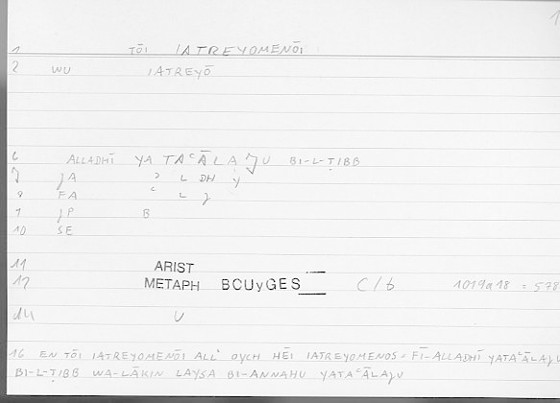 1 TŌI IATREYOMENŌI
2 WU IATREYŌ
6 ALLADHĪ YATAʿĀLAǧU BI-L-ṬIBB
7 ǧA ʾ L DH Y
8 FA ʿ L ǧ
9 ǧP B
10 SE
11 ARIST
12 METAPH BCUyGES C/b 1019a18 = 578
14 U
16 EN TŌI IATREYOMENŌI ALL' OYCH HĒI IATREYOMENOS = FĪ-ALLADHĪ YATAʿĀLAǧU
BI-L-ṬIBB WA-LĀKIN LAYSA BI-ANNAHU YATAʿĀLAǧU